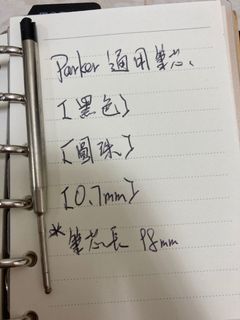 Parker 通用筆芯、
[黑色]
[圓珠]
[0.7mm]
*筆芯長 98mm